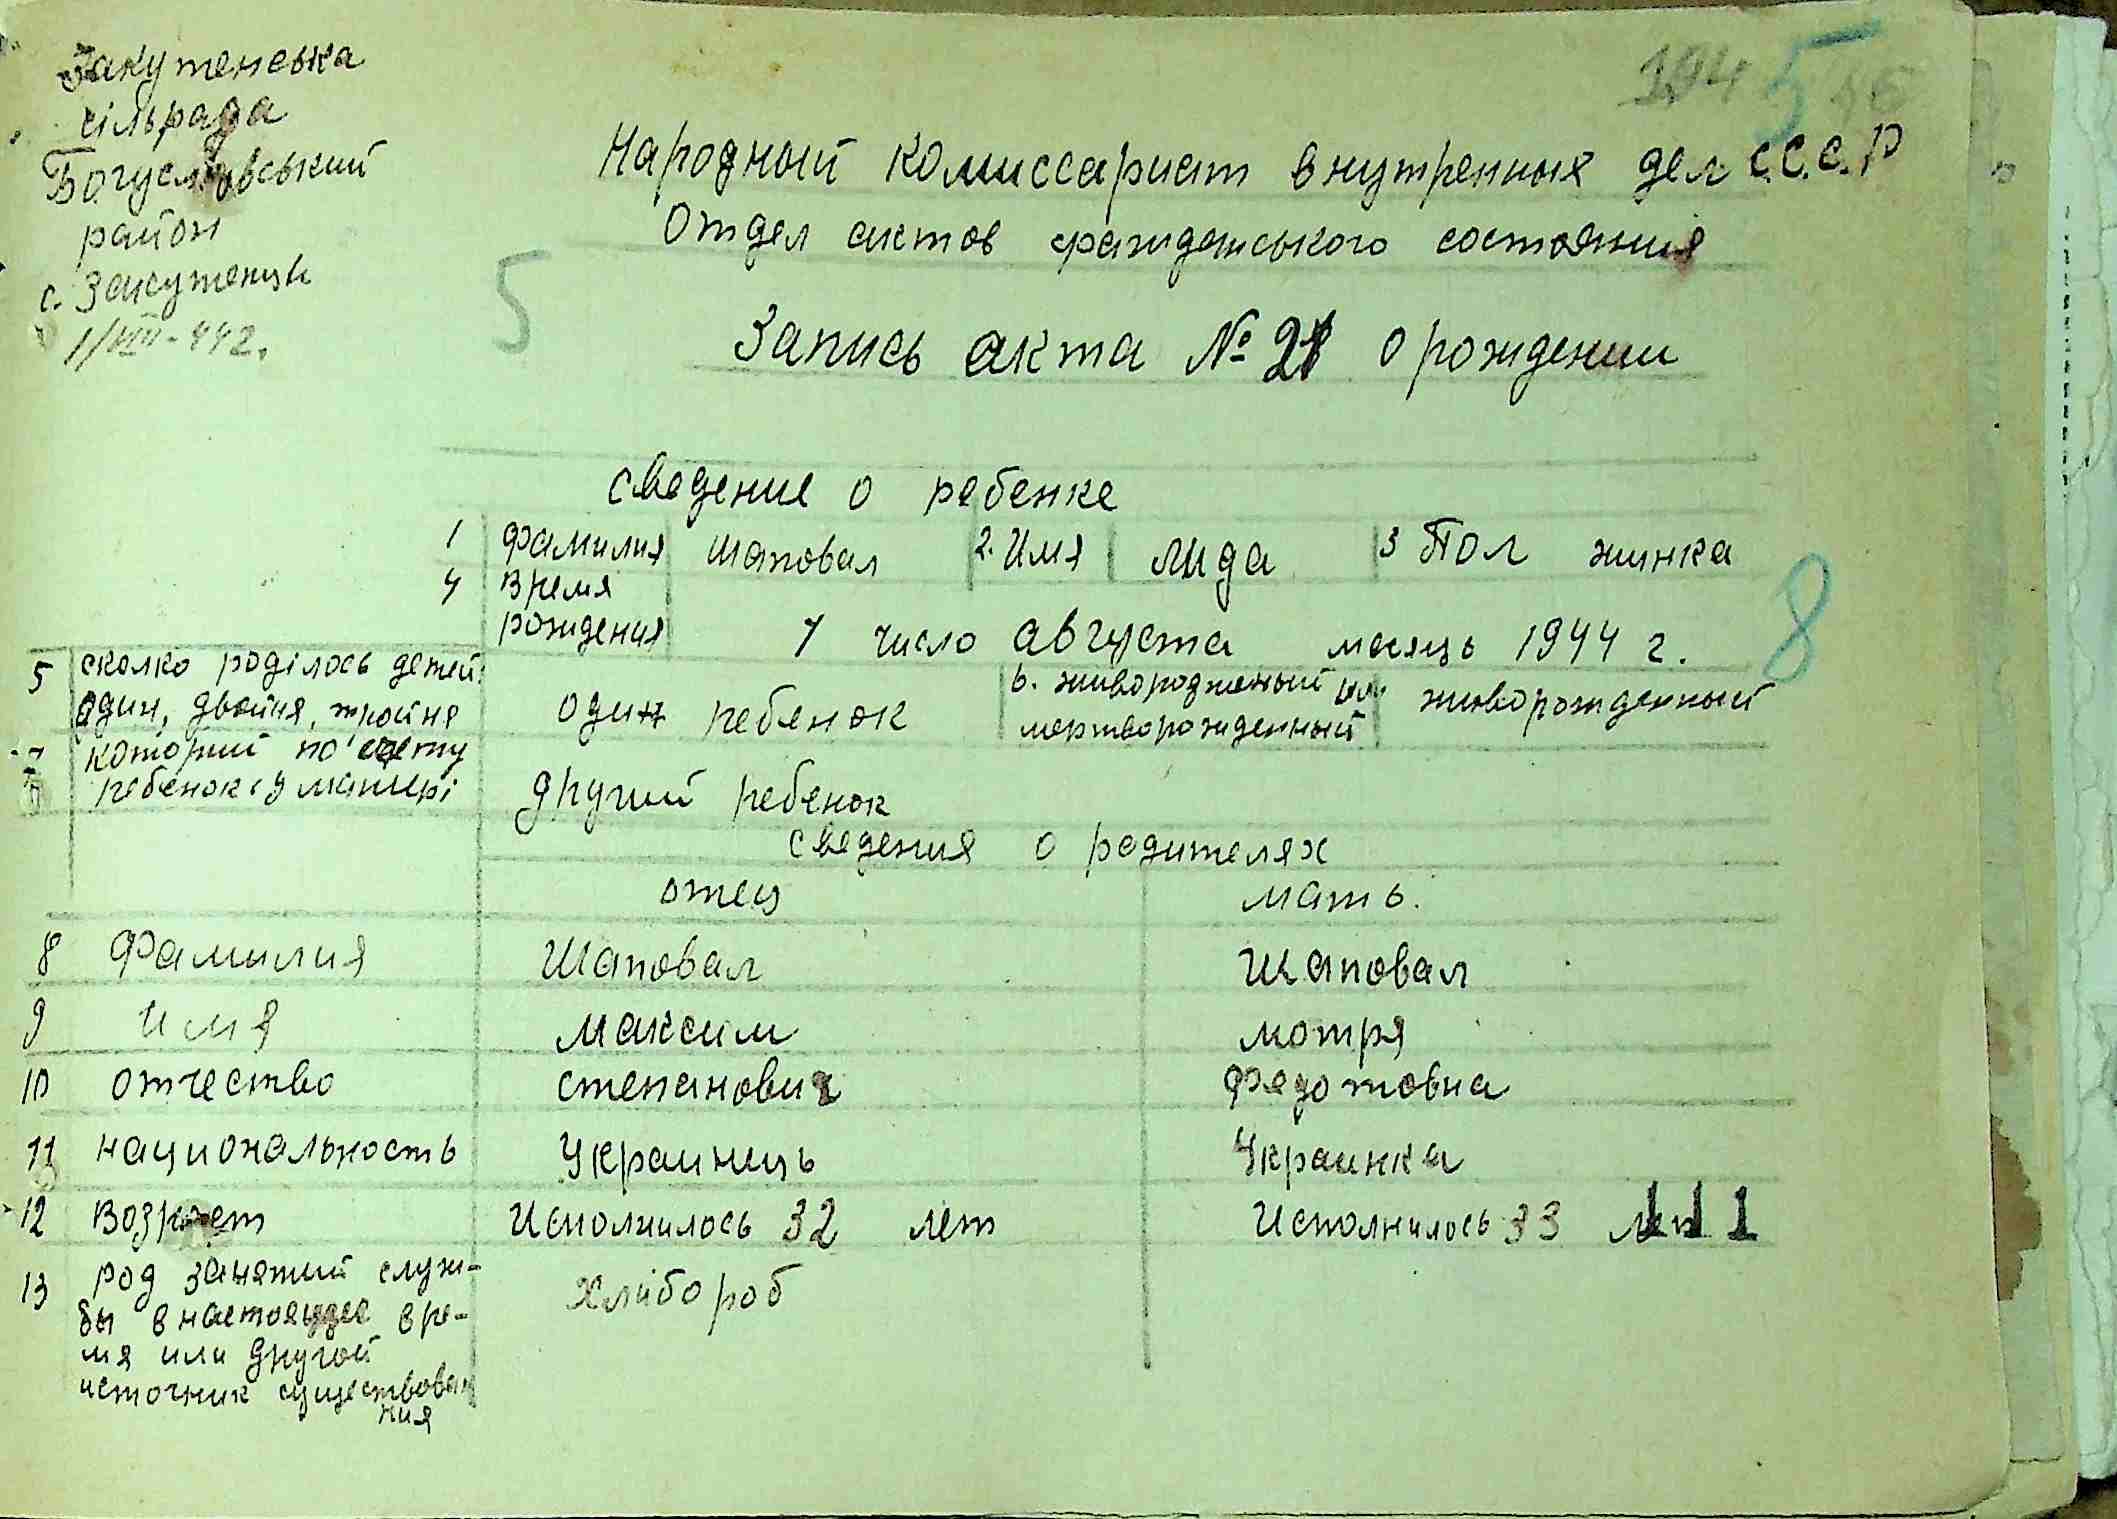 Закутенська
сільрада
Богуславський
район
с. Закутенці
1/VIII-442.
194 5
Народный комиссариат внутренных дел С.С.С.Р
Отдел актов гражданського состояния
5
Запись акта № 21 о рождении
сведение о ребенке
1 фамилия Шаповал 2. Имя лида 3 Пол жинка
4 время
рождения 1 число августа месяць 1944 г.
8
5 сколко роділось детей:
один, двойня, тройня один ребенок 6. живородженый или мертворожденный живорожденный
7 которий по счету
ребенок у матері другий ребенок
сведения о родителях
отец мать.
8 Фамилия Шаповал Шаповал
9 имя максим мотря
10 отчество степанович Федотовна
11 национальность Украинець Украинка
12 Возраст Исполнилось 32 лет Исполнилось 33 лет
13 род занятий служ-
бы в настоящее вре-
мя или другой
источник существован
ния
хлібороб